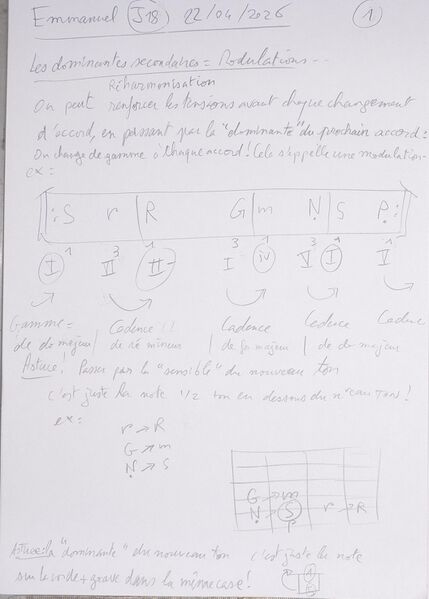 Emmanuel J18 22/04/2026 1
Les dominantes secondaires = Modulations...
Réharmonisation
On peut renforcer les tensions avant chaque changement
d'accord, en passant par la "dominante" du prochain accord:
On change de gamme à chaque accord! Cela s'appelle une modulation.
ex:
S r R G m N S P
I 1 II 3 II- 1 I 3 iv 1 V 3 I 1 V 1
Gamme = Cadence Cadence Cadence Cadence
de do majeur | de ré mineur | de fa majeur | de do majeur
Astuce! Passer par la "sensible" du nouveau ton
c'est juste la note 1/2 ton en dessous du ton!
ex:
r → R
G → m
N → S
G → m
N → S r → R
P
Astuce: la "dominante" du nouveau ton c'est juste la note
sur la corde + grave dans la même case!